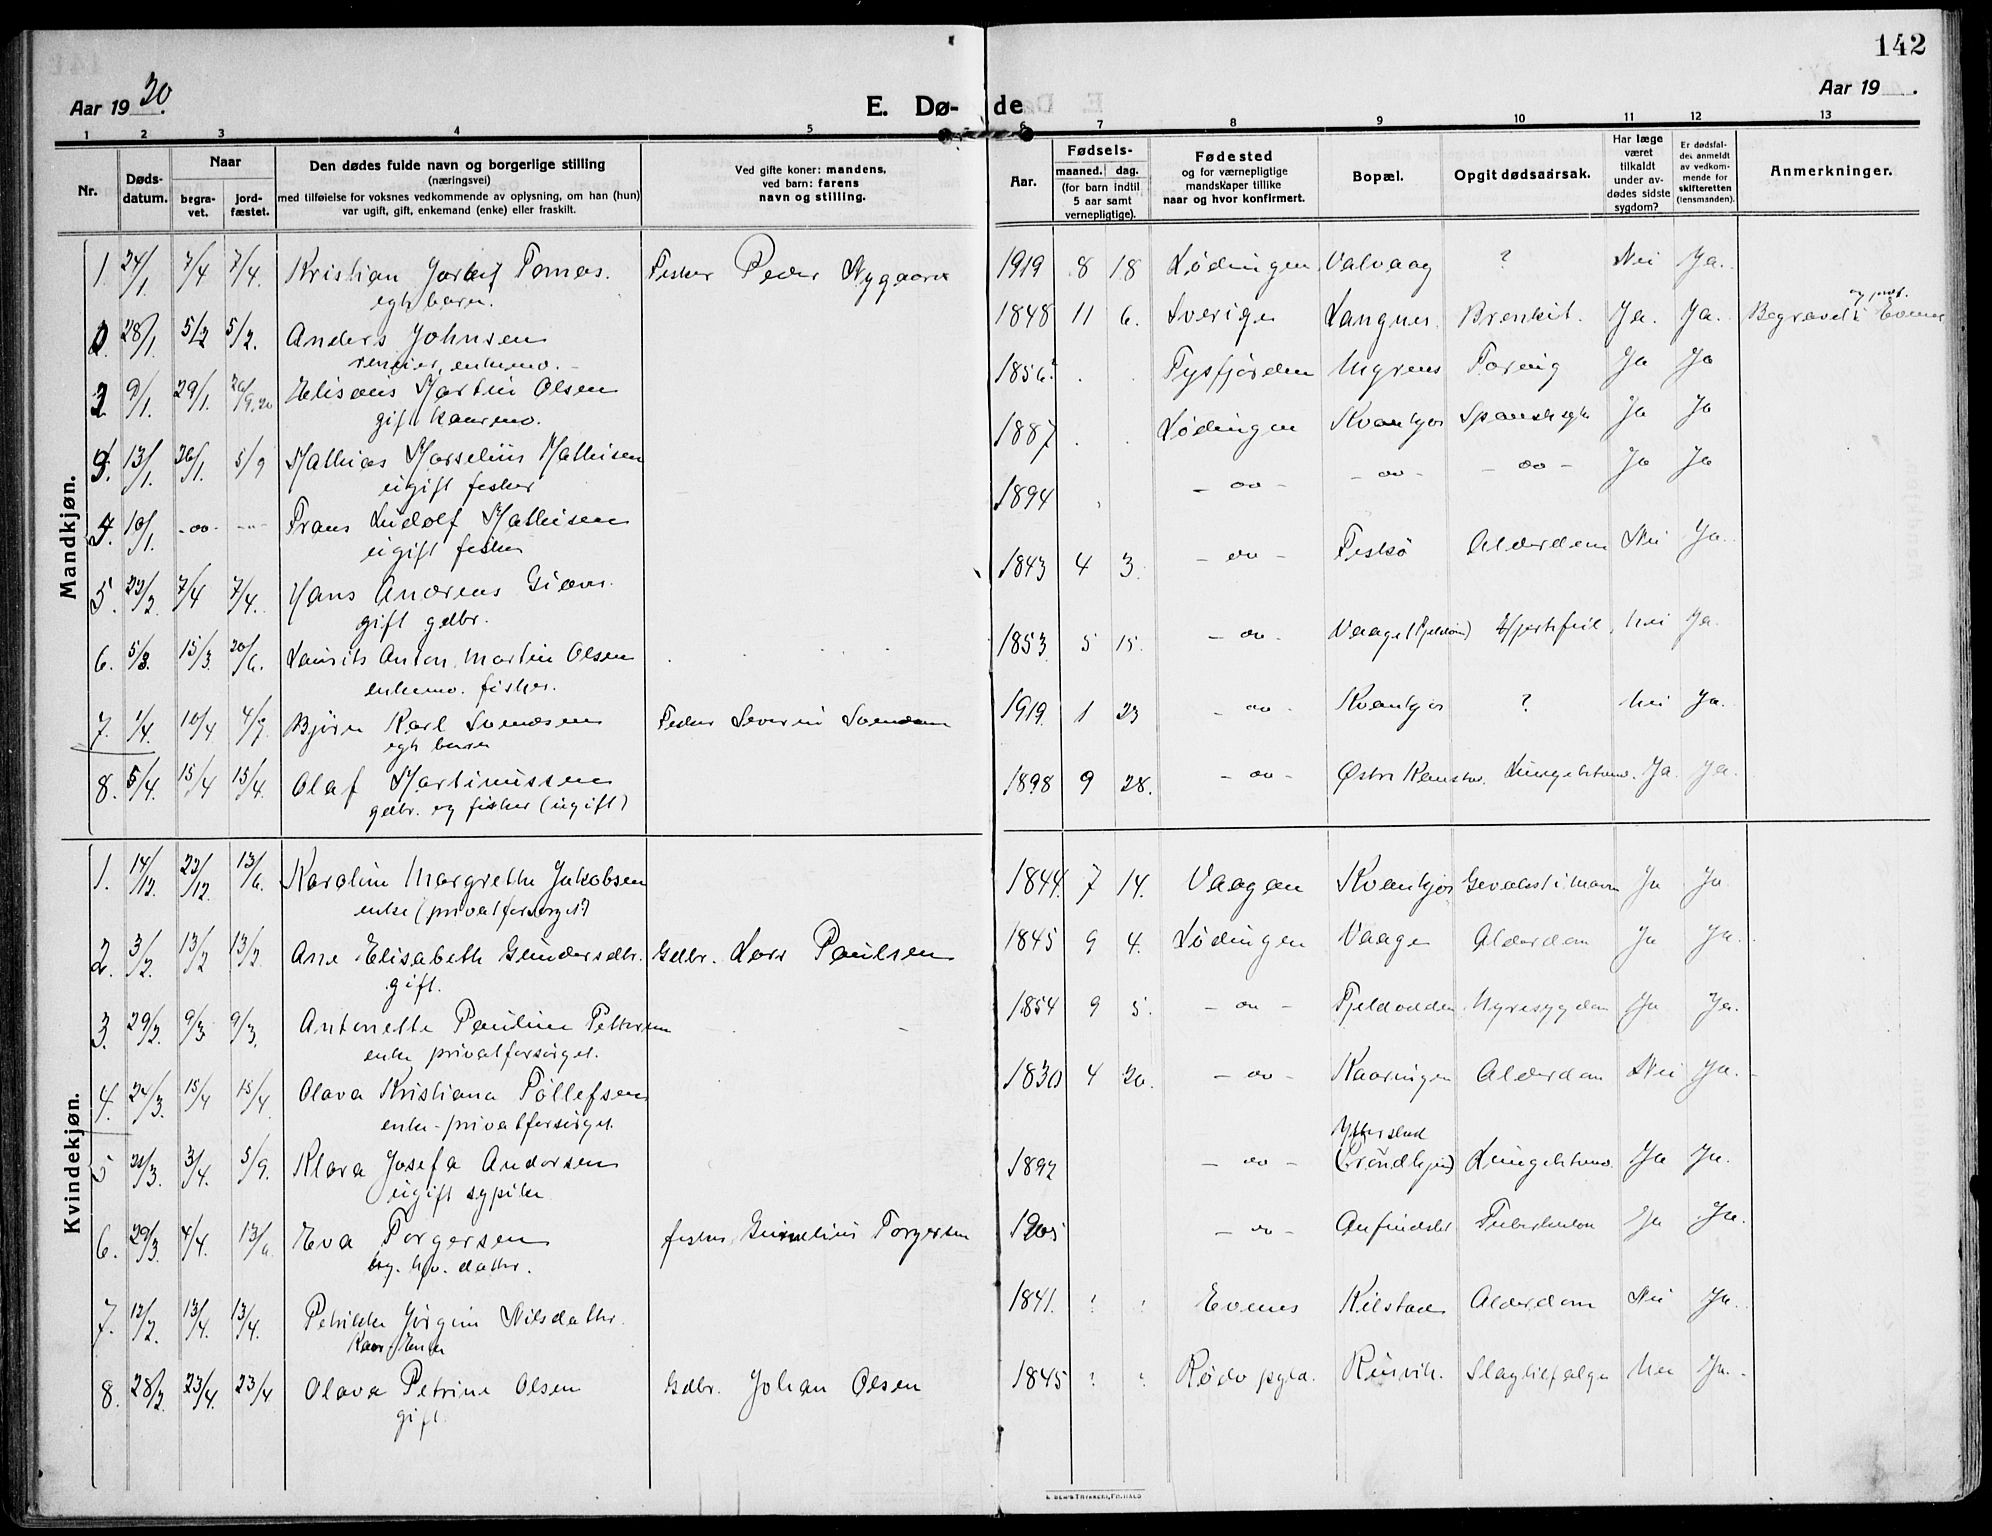 142
Aar 19 20.
E. Dø- de
Aar 19 .
1 2 3 4 5 6 7 8 9 10 11 12 13
Nr.
Døds-datum.
Naar
begra-vet.
jord-fæstet.
Den dødes fulde navn og borgerlige stilling
(næringsvei)
med tilføielse for voksnes vedkommende av oplysning, om han (hun)
var ugift, gift, enkemand (enke) eller fraskilt.
Ved gifte koner: mandens,
ved barn: farens
navn og stilling.
Aar.
Fødsels-
maaned. dag.
(for barn indtil
5 aar samt
vernepligtige).
Fødested
og for værnepligtige
mandskaper tillike
naar og hvor konfirmert.
Bopæl.
Opgit dødsaarsak.
Har læge
været
tilkaldt
under av-
dødes sidste
sygdom?
Er dødsfal-
det anmeldt
av vedkom-
mende for
skifteretten
(lensmanden).
Anmerkninger.
Mandkjøn.
1. 24/1. 7/4 7/4. Kristian Tomas. Fisker Peder Nygaard 1919 8 18 Lødingen Valvaag ? Nei Ja.
egte barn.
28/1. 5/2 5/2. Anders Johnsen 1848 11 6. Sverige Langnes. Ja. Ja. Begravet i Evenes
enkem.
2. 9/1. 29/1. 26/9.20 Elisæus Martin Olsen 1856. . . Tysfjorden Myrnes Ja Ja
gift
3. 13/1. 26/1. 5/9 Mathias Marselius Mathisen 1887 . . Lødingen Kvankjos Spansksyk Ja Ja
ugift fisker
4. 10/1. -oo- -"- Frans Ludolf Mathisen 1894 - oo - - oo - - oo - Ja Ja
ugift fisker
5. 23/2. 7/4 7/4. Hans Andreas Giæver. 1843 4 3. - oo - Fiskø Alderdom Nei Ja.
gift gdbr.
6. 5/3. 15/3. 20/6. Laurits Anton Martin Olsen 1853 5 15. - oo - Vaage (Fjeldøen) Hjertefeil. Nei Ja.
enkem. fisker.
7. 1/4. 10/4 4/7. Bjørn Karl Svendsen Fisker Severin Svendsen 1919. 1 23 - oo - Kvankjos ? Nei Ja.
egte barn
8. 5/4. 15/4 15/4. Olaf Martinussen 1898 9 28. - oo - Østre Ja. Ja.
gdbr. og fisker (ugift)
Kvindekjøn.
1. 14/12. 22/12. 13/6. Karoline Margrethe Jakobsen 1844. 7 14. Vaagan Kvankjos Ja Ja.
enke (privatforsørget)
2. 3/2. 13/2 13/2. Ane Elisabeth Gundersdtr. Gdbr. Lars Paulsen 1845 9 4. Lødingen Vaage Alderdom Ja Ja.
gift.
3. 29/2. 9/3 9/3. Antonette Pauline Pettersen 1854 9 5. - oo - Fjeldvolden Nyresygdom Ja Ja.
enke privatforsørget.
4. 24/3. 15/4 15/4. Olava Kristiana Tøllefsen 1830 4 20. - oo - Kaaringen Alderdom Nei Ja.
enke - privatforsørget.
5 3/4. 5/9. Klara Josefa Andersen 1892 - oo - Ja Ja.
ugift sypike
6. 29/3. 4/4. 13/6 Eva Torgersen fisker Torgersen 1905 - oo - Tuberkulose Ja Ja.
hjv. datter.
7. 12/2. 13/4. 13/4. Petrikke Jørgine Nilsdatter. 1841. ? ? Evenes Kilstad Alderdom Nei Ja.
8. 28/2. 23/4. 23/4 Olava Petrine Olsen Gdbr. Johan Olsen 1845 ? ? Rødø pgld. Rinvik. Slagtilfælge Nei Ja.
gift.